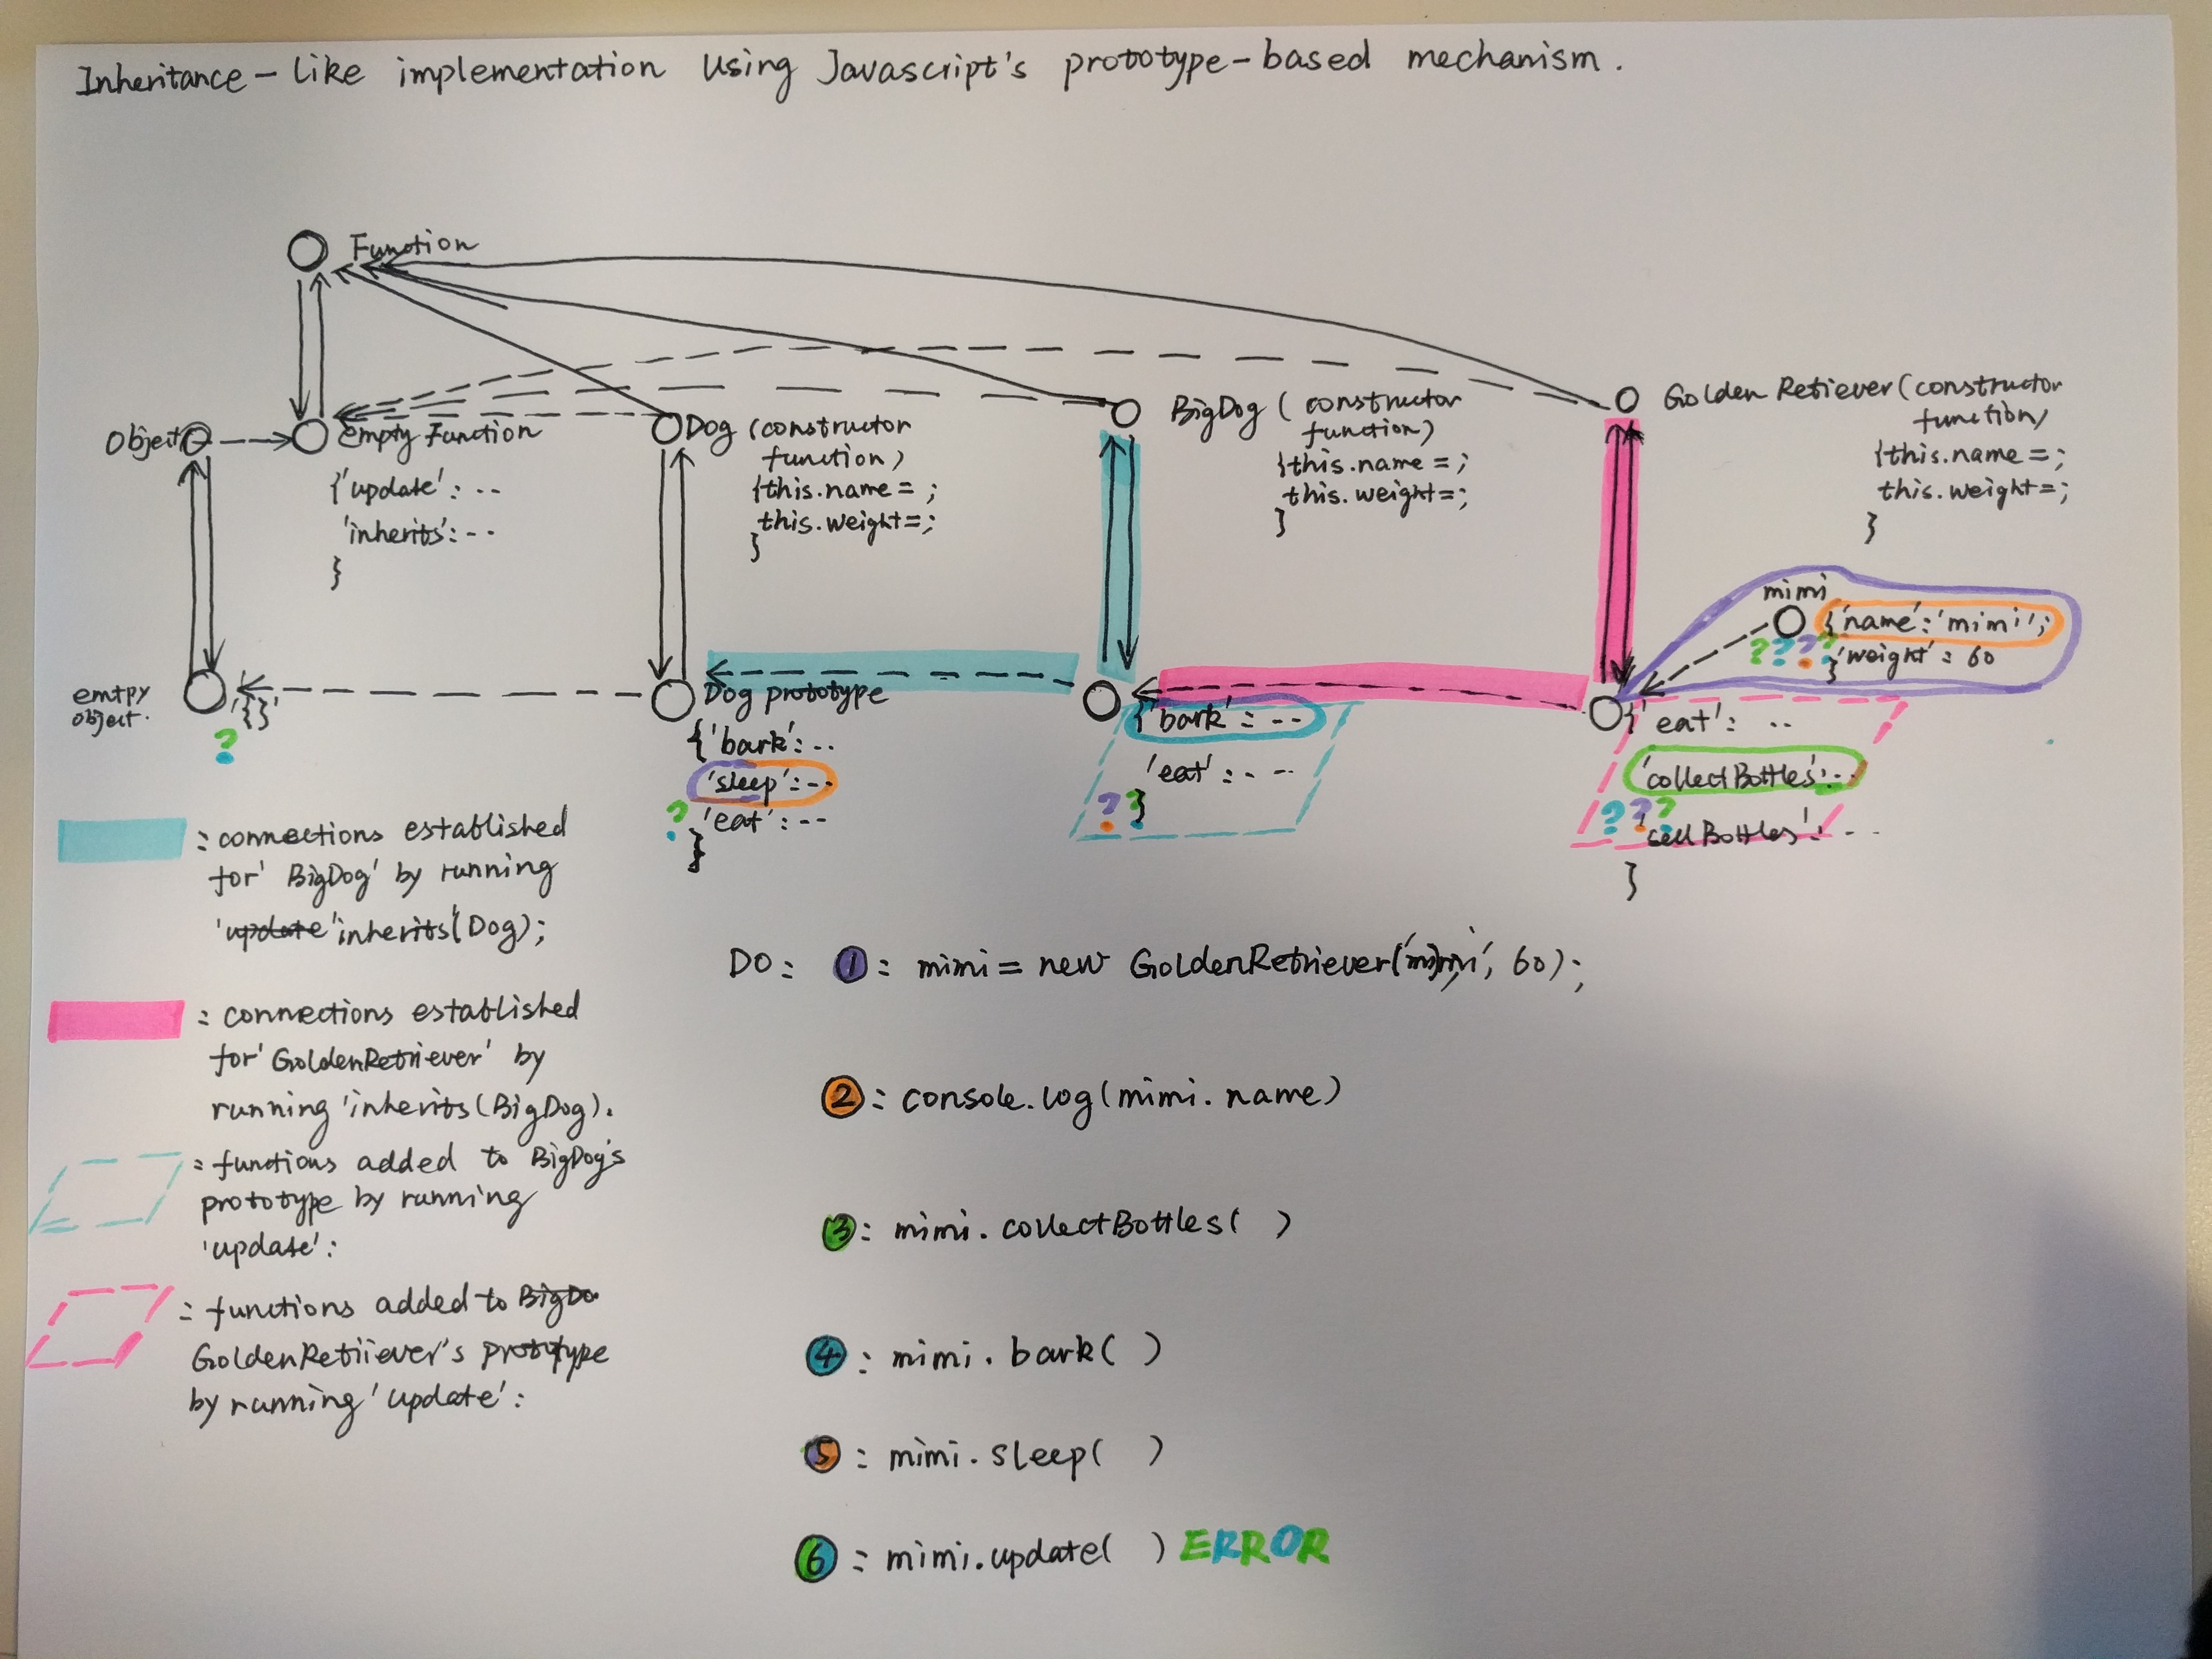 Inheritance-like implementation using Javascript's prototype-based mechanism.
Function
Object
empty Function
{'update': --
'inherits': --
}
Dog (constructor
function)
{this.name = ;
this.weight=;
}
BigDog (constructor
function)
{this.name = ;
this.weight=;
}
Golden Retiever (constructor
function)
{this.name = ;
this.weight=;
}
mimi
{'name': 'mimi';
'weight' = 60
}
? ? ? ?
emtpy
object.
'{}'
?
Dog prototype
{'bark': ..
'sleep': --
'eat': --
}
?
{'bark': --
'eat': - --
}
? ?
{'eat': ..
'collectBottles': ..
'sellBottles': --
}
? ? ?
: connections established
for 'BigDog' by running
'update 'inherits'(Dog);
: connections established
for 'GoldenRetriever' by
running 'inherits(BigDog).
: functions added to BigDog's
prototype by running
'update':
: functions added to BigDo
GoldenRetiiever's prototype
by running 'update':
DO: 1: mimi = new GoldenRetriever('mimi', 60);
2: console.log(mimi.name)
3: mimi.collectBottles( )
4: mimi.bark( )
5: mimi.sleep( )
6: mimi.update( ) ERROR